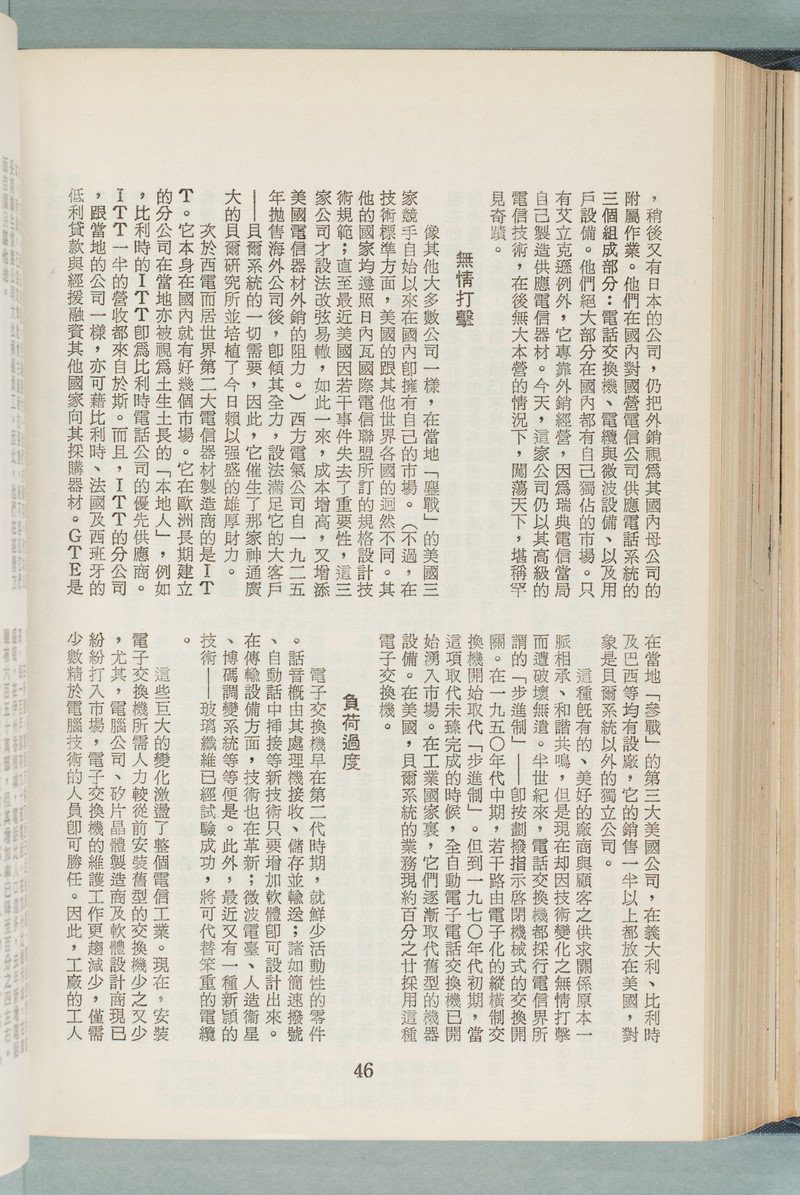 ，稍後又有日本的公司，仍把外銷視爲其國內母公司的
附屬作業。他們在國內對國營電信公司供應電話系統的
三個組成部分：電話交換機、電纜與微波設備、以及用
戶設備。他們絕大部分在國內都有自己獨佔的市場。只
有艾立克遜例外，它專靠外銷經營，因爲瑞典電信當局
自己製造供應電信器材。今天，這家公司仍以其高級的
電信技術，在後無大本營的情況下，闖蕩天下，堪稱罕
見奇蹟。
無情打擊
像其他大多數公司一樣，在當地「鏖戰」的美國三
家競手自始以來在國內卽擁有自己的市場。（不過，在
技術標準方面，美國的跟其他世界各國的迥然不同。其
他的國家均遵照日內瓦國際電信聯盟所訂的規格設計技
術規範；直至最近美國因若干事件失去了重要性，這三
家公司才設法改弦易轍，如此一來，成本增高，又增添
美國電信器材外銷的阻力。）西方電氣公司自一九二五
年拋售海外公司後，卽傾其全力，設法滿足它的大客戶
——貝爾系統的一切需要，因此，它催生了那家神通廣
大的貝爾研究所並培植了今日賴以强盛的雄厚財力。
次於西電而居世界第二大電信器材製造商的是ＩＴ
Ｔ。它本身在國內就有好幾個市場。它在歐洲長期建立
的分公司在當地亦被視爲土生土長的「本地人」，例如
，比利時的ＩＴＴ卽爲比利時電話公司的優先供應商。
ＩＴＴ一半的營收都來自於斯。而且，ＩＴＴ的分公司
，跟當地的公司一樣，亦可藉比利時、法國及西班牙的
低利貸款與經援融資其他國家向其採購器材。ＧＴＥ是
在當地「參戰」的第三大美國公司，在義大利、比利時
及巴西等均有設廠，它的銷售一半以上都放在美國，對
象是貝爾系統以外的獨立公司。
這種旣有的、美好的廠商與顧客之供求關係原本一
脈相承、和諧共鳴，但是現在却因技術變化之無情打擊
而遭破壞無遺。半世紀來，電話交換機都採行電信界所
謂的「步進制」——卽按劃撥指示啓閉機械式的交換開
關。在一九五〇年代中期，若干路由電子化的縱橫制交
換機開始取代「步進制」。但到一九七〇年代初期，當
這項取代未臻完成的時候，全自動電子電話交換機已開
始湧入市場。在工業國家裏，它們逐漸取代舊型的機器
設備。在美國，貝爾系統的業務現約百分之廿採用這種
電子交換機。
負荷過度
電子交換機早在第二代時期，就鮮少活動性的零件
。話音概由其處理機接收、儲存並輸送；諸如簡速撥號
、自動話中插接等新技術只要增加軟體卽可設計出來。
在傳輸設備方面，技術也在革新；微波電臺、人造衞星
、博碼調變系統等等便是。此外，最近又有一種新穎的
技術——玻璃纖維已經試驗成功，將可代替笨重的電纜
。
這些巨大的變化激盪了整個電信工業。現在，安裝
電子交換機所需人力較從前安裝舊型的交換機少之又少
，尤其，電腦公司、矽片晶體製造商及軟體設計商現已
紛紛打入市場，電子交換機的維護工作更趨減少，僅需
少數精於電腦技術的人員卽可勝任。因此，工廠的工人
46